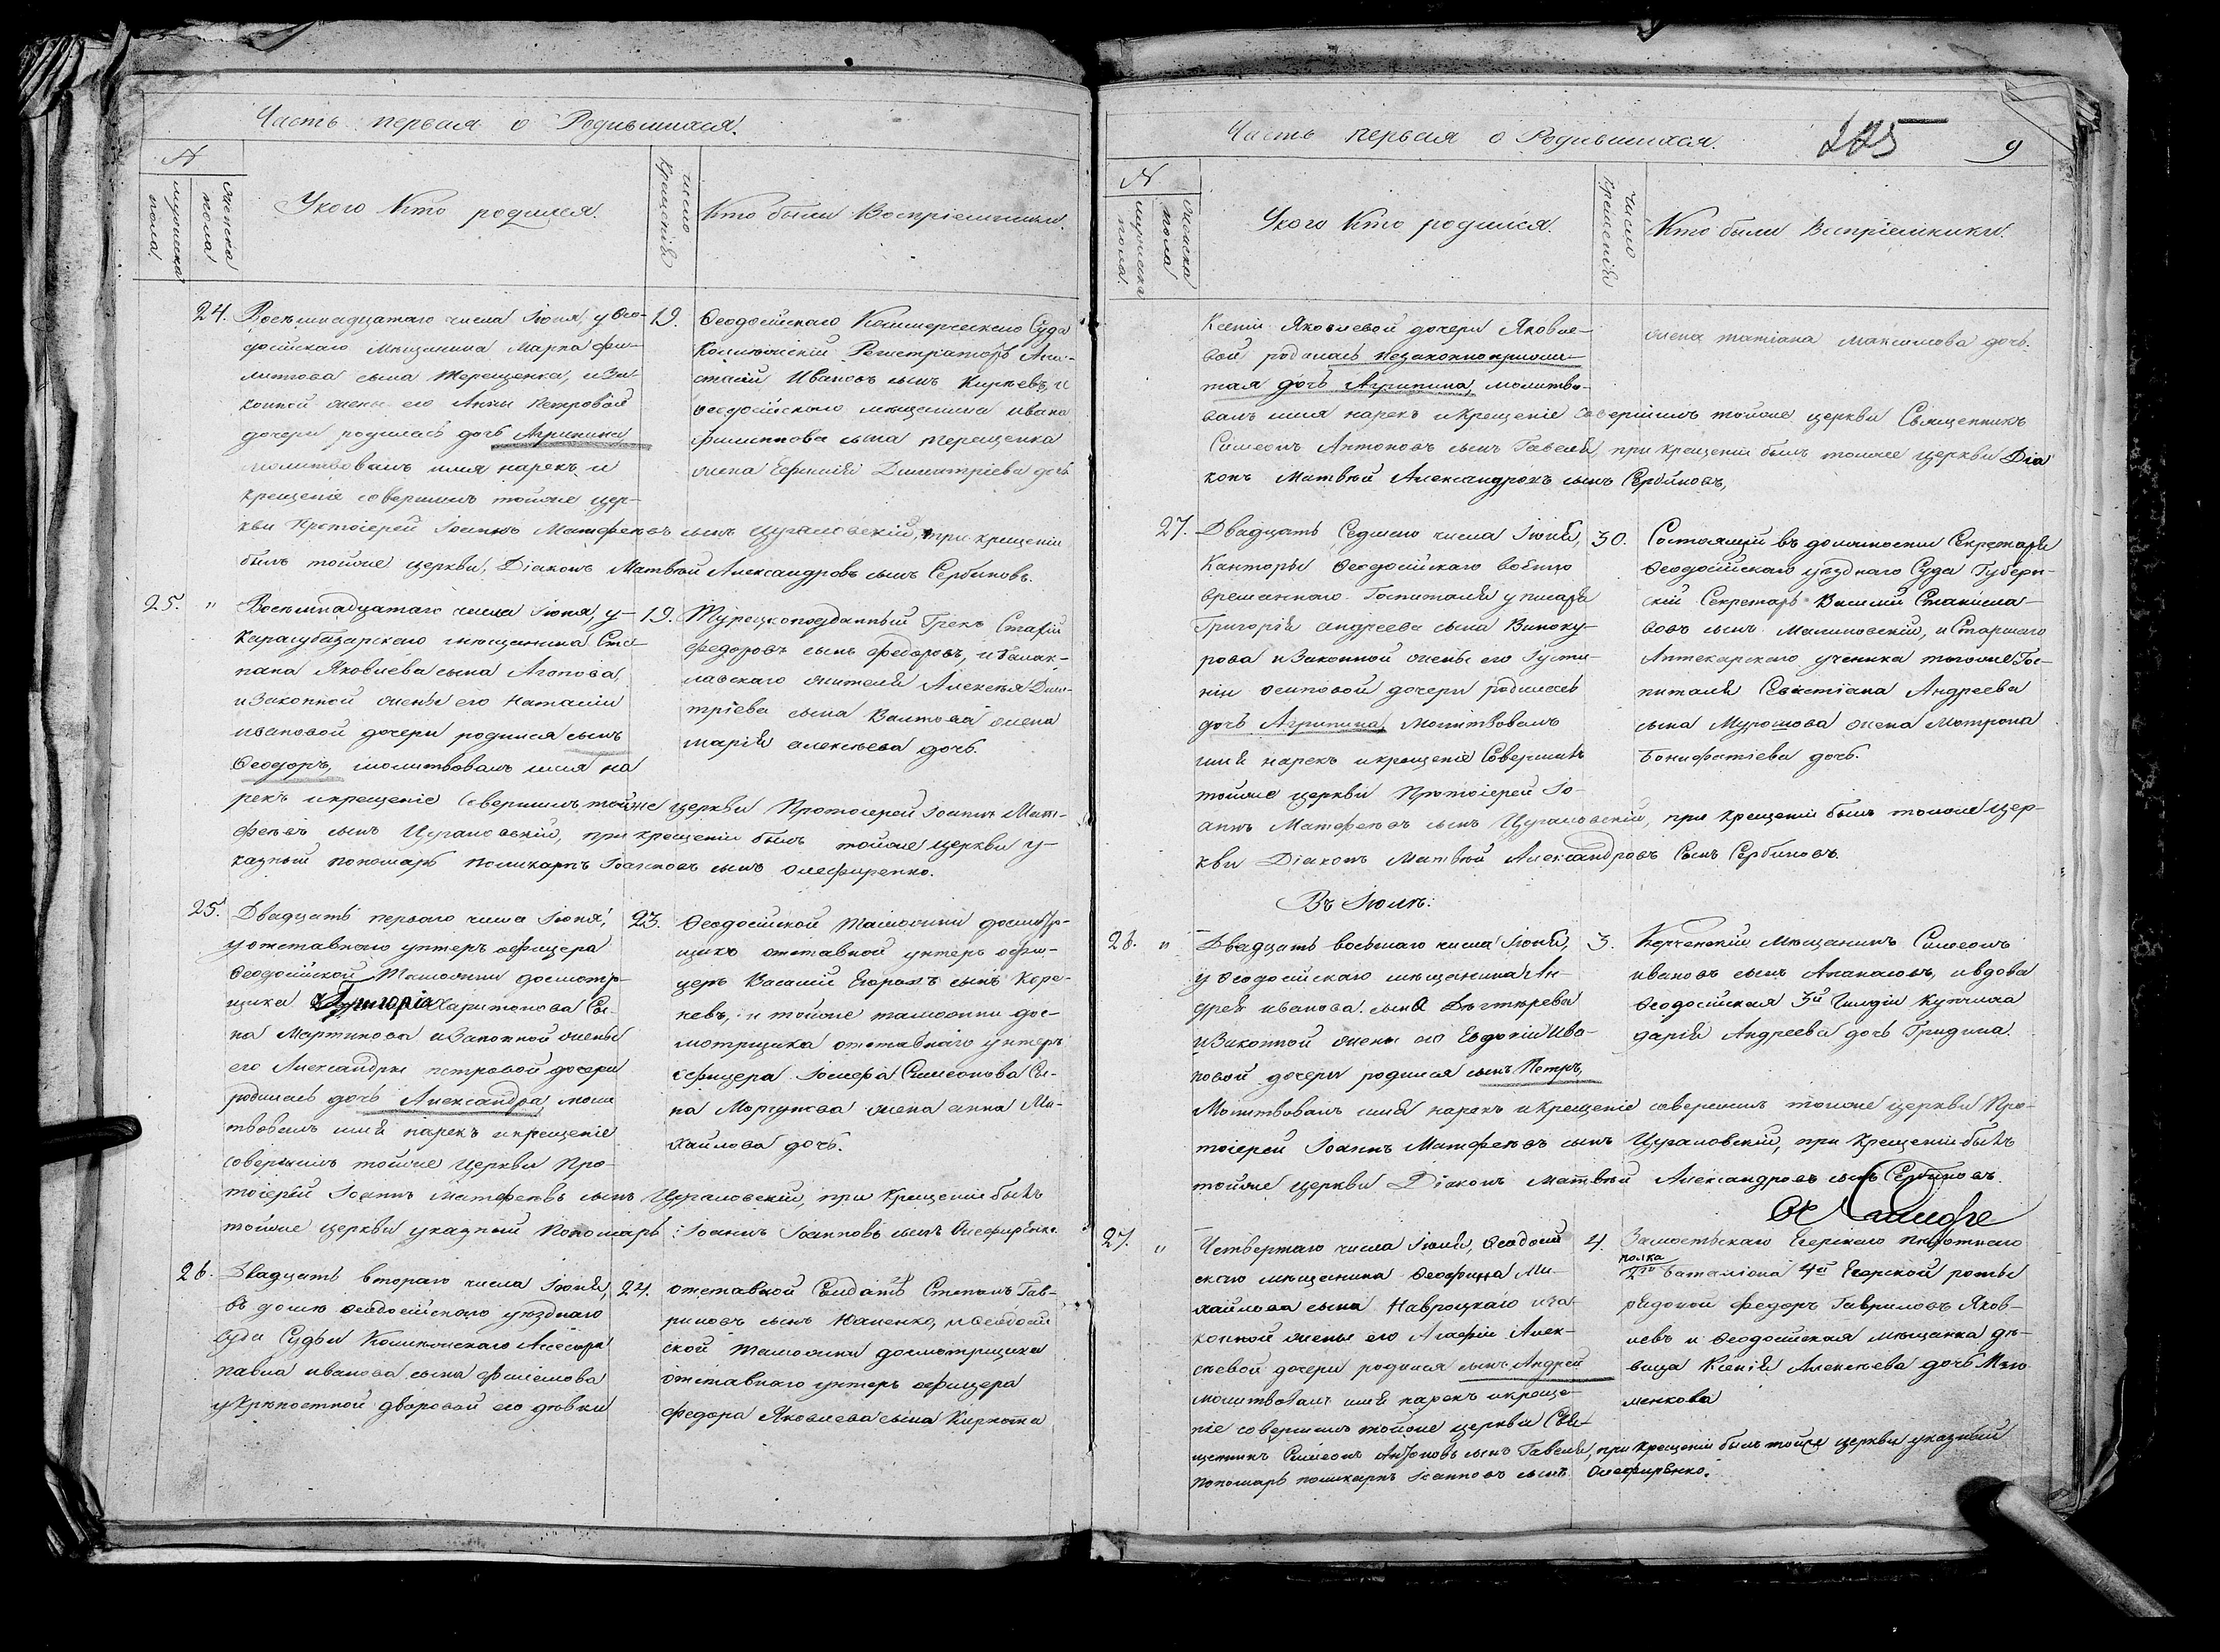 Часть первая о Родившихся.
№
мужеска пола
женска пола
У кого Кто родился.
число Крещенія
Кто были Воспріемники.
24. Восемнадцатаго числа Іюня, у Ѳео-
досійскаго Мѣщанина Марка Фи-
липова сына Терещенка, и За-
конной жены его Анны Петровой
дочери родилась дочь Агрипина
молитвовалъ имя нарекъ и
крещеніе совершилъ тойже цер-
кви Протоіерей Іоаннъ Матфеевъ сынъ Цурановскій, при крещеніи
былъ тойже церкви, Діаконъ Матвѣй Александровъ сынъ Сербиновъ.
19. Ѳеодосійскаго Коммерческаго Суда
Коллежскій Регистраторъ Ана-
стасій Ивановъ сынъ Кирѣевъ, и
Ѳеодосійскаго мѣщанина Ивана
Филиппова сына Терещенка
жена Ефимія Димитріева дочь
25. " Восемнадцатаго числа Іюня, у
Карасубазарскаго мѣщанина Сте-
пана Яковлева сына Агопова,
и Законной жены его Наталіи
Ивановой дочери родился сынъ
Ѳеодоръ, молитвовалъ имя на
рекъ и крещеніе Совершилъ тойже церкви Протоіерей Іоаннъ Мат-
феевъ сынъ Цурановскій, при крещеніи былъ тойже церкви у-
казный пономарь Поликарпъ Іоанновъ сынъ Олефиренко.
19. Турецкоподданный Грекъ Статій
Федоровъ сынъ Федоровъ, и Балак-
лавскаго жителя Алексѣя Дими-
тріева сына Валтова жена
Марія Алексѣева дочь.
25. Двадцать перваго числа Іюня,
у отставнаго унтеръ офицера
Ѳеодосійской Таможни досмотр-
щика Григорія Харитонова Сы-
на Мартинова и Законной жены
его Александры Петровой дочери
родилась дочь Александра, моли
твовалъ имя нарекъ и крещеніе
совершилъ тойже церкви Про-
тоіерей Іоаннъ Матфеевъ сынъ Цурановскій, при крещеніи былъ
тойже церкви указный Пономарь Іоаннъ Іоанновъ сынъ Олефиренко.
23. Ѳеодосійской Таможни досмотр-
щикъ отставной унтеръ офи-
церъ Василій Егоровъ сынъ Коре-
невъ, и тойже таможни дос-
мотрщика отставнаго унтеръ
офицера Іосифа Симеонова Сы-
на Моргунова жена Анна Ми-
хайлова дочь.
26. Двадцать втораго числа Іюня,
въ домѣ Ѳеодосійскаго уѣзднаго
суда Судьи Коллежскаго Асесора
Павла Иванова сына Филемова
у Крѣпостной дворовой его дѣвки
24. отставной Солдатъ Степанъ Гав-
риловъ сынъ Наменко, и Ѳеодосій
ской Таможни досмотрщика
отставнаго унтеръ офицера
Федора Яковлева сына Кирнота
Часть первая о Родившихся.
225
9
№
мужеска пола
женска пола
У кого Кто родился.
число Крещенія
Кто были Воспріемники.
Ксеніи Яковлевой дочери Яковле-
вой родилась незаконноприжи-
тая дочь Агрипина, молитво-
валъ имя нарекъ и крещеніе совершилъ тойже церкви Священникъ
Симеонъ Антоновъ сынъ Гавеля, при крещеніи былъ тойже церкви Діа
конъ Матвѣй Александровъ сынъ Сербиновъ,
жена Татіана Максимова дочь.
27. Двадцать Седмаго числа Іюня,
Канторы Ѳеодосійскаго военно
временнаго Госпиталя у писаря
Григорія Андреева сына Виноку-
рова и Законной жены его Іусти-
ніи Осиповой дочери родилась
дочь Агрипина, Молитвовалъ
имя нарекъ и крещеніе Совершилъ
тойже церкви Протоіерей Іо-
аннъ Матфеевъ сынъ Цурановскій, при крещеніи былъ тойже цер-
кви Діаконъ Матвѣй Александровъ Сынъ Сербиновъ.
30. Состоящій въ должности Секретаря
Ѳеодосійскаго уѣзднаго Суда Губерн-
скій Секретарь Василій Станисла-
вовъ сынъ Малиновскій, и Старшаго
Аптекарскаго ученика тогоже Гос-
питаля Севастіана Андреева
сына Мурошова жена Матрона
Бонифатіева дочь.
Въ Іюлѣ.
28. " Двадцать восьмаго числа Іюня,
у Ѳеодосійскаго мѣщанина Ан-
дрея Иванова сына Дѣгтярева
и Законной жены его Евдокіи Ива-
новой дочери родился сынъ Петръ,
Молитвовалъ имя нарекъ и крещеніе совершилъ тойже церкви Про-
тоіерей Іоаннъ Матфеевъ сынъ Цурановскій, при крещеніи былъ
тойже церкви Діаконъ Матвѣй Александровъ сынъ Сербиновъ.
3. Керченскій Мѣщанинъ Симеонъ
Ивановъ сынъ Ананасовъ, и вдова
Ѳеодосійская 3й Гильдіи Купчиха
Дарія Андреева дочь Гридина.
27. " Четвертаго числа Іюля, Ѳеодосій
скаго мѣщанина Ѳеофила Ми-
хайлова сына Навроцкаго и за-
конной жены его Агафіи Алек-
сѣевой дочери родился сынъ Андрей
молитвовалъ имя нарекъ и креще-
ніе совершилъ тойже церкви Свя-
щенникъ Симеонъ Антоновъ сынъ Гавеля, при крещеніи былъ тойже церкви указный
Пономарь Поликарпъ Іоанновъ сынъ Олефиренко.
4. Замостьскаго Егерскаго Пѣхотнаго
полка
2го баталіона 4й Егерской роты
рядовой Федоръ Гавриловъ Яков-
левъ и Ѳеодосійская мѣщанка дѣ-
вица Ксенія Алексѣева дочь
менкова